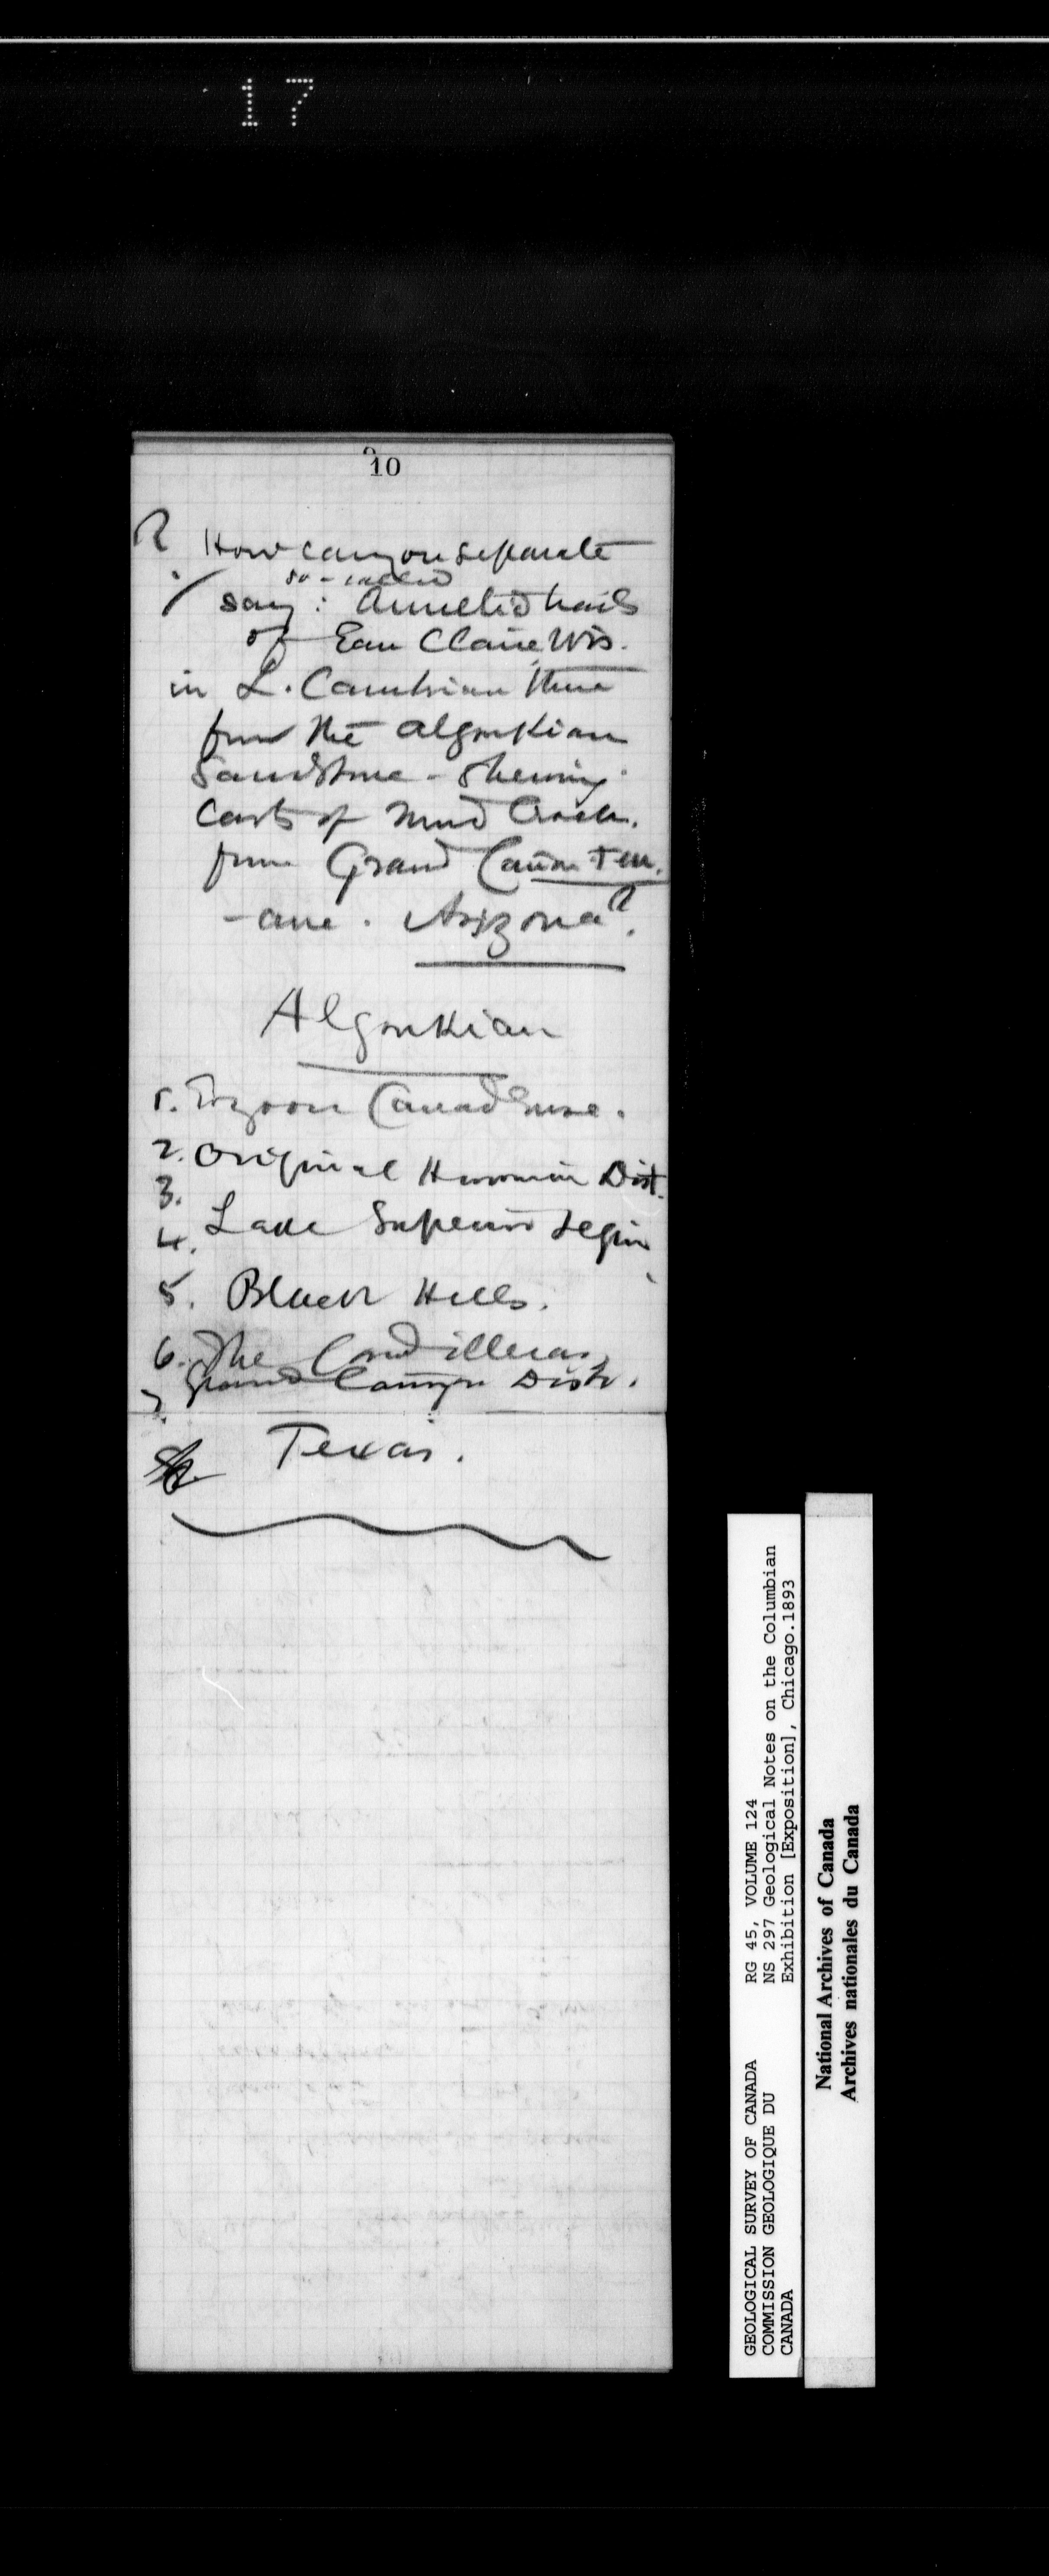 17
10
? How can you separate
so-called
say: Annelid trails
of Eau Claire, Wis.
in L. Cambrian there
from the Algonkian
Sandstone - shewing
Casts of mud Cracks.
from Grand Cañon
Arizona?
Algonkian
1. Eozoon Canadense.
2. Original Huronian Dist.
3.
Lake Superior region
4.
5. Black Hills.
6. The Cordilleras
Grand Canyon Distr.
7.
Texas.
GEOLOGICAL SURVEY OF CANADA
COMMISSION GEOLOGIQUE DU
CANADA
RG 45, VOLUME 124
NS 297 Geological Notes on the Columbian
Exhibition [Exposition], Chicago.1893
National Archives of Canada
Archives nationales du Canada